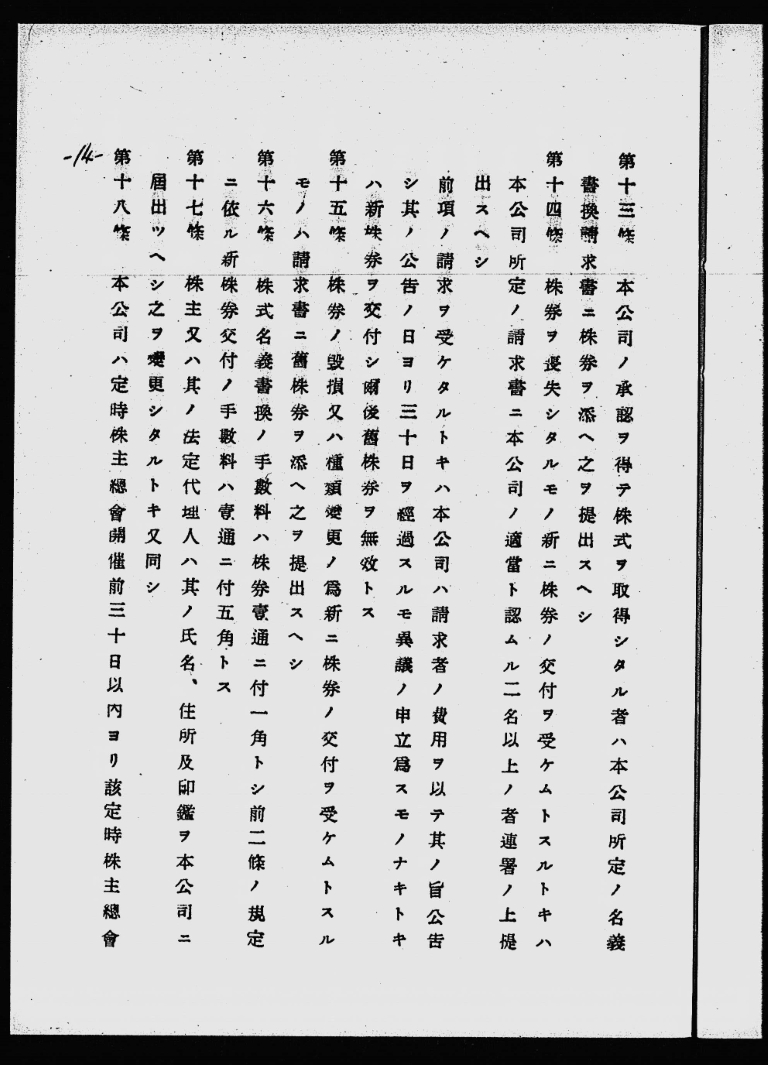 第十三條　本公司ノ承認ヲ得テ株式ヲ取得シタル者ハ本公司所定ノ名義
書換請求書ニ株券ヲ添ヘ之ヲ提出スヘシ
第十四條　株券ヲ喪失シタルモノ新ニ株券ノ交付ヲ受ケムトスルトキハ
本公司所定ノ請求書ニ本公司ノ適當ト認ムル二名以上ノ者連署ノ上提
出スヘシ
前項ノ請求ヲ受ケタルトキハ本公司ハ請求者ノ費用ヲ以テ其ノ旨公告
シ其ノ公告ノ日ヨリ三十日ヲ經過スルモ異議ノ申立爲スモノナキトキ
ハ新株券ヲ交付シ爾後舊株券ヲ無效トス
第十五條　株券ノ毀損又ハ種類變更ノ爲新ニ株券ノ交付ヲ受ケムトスル
モノハ請求書ニ舊株券ヲ添ヘ之ヲ提出スヘシ
第十六條　株式名義書換ノ手數料ハ株券壹通ニ付一角トシ前二條ノ規定
ニ依ル新株券交付ノ手數料ハ壹通ニ付五角トス
第十七條　株主又ハ其ノ法定代理人ハ其ノ氏名、住所及印鑑ヲ本公司ニ
屆出ツヘシ之ヲ變更シタルトキ又同シ
第十八條　本公司ハ定時株主總會開催前三十日以內ヨリ該定時株主總會
-14-